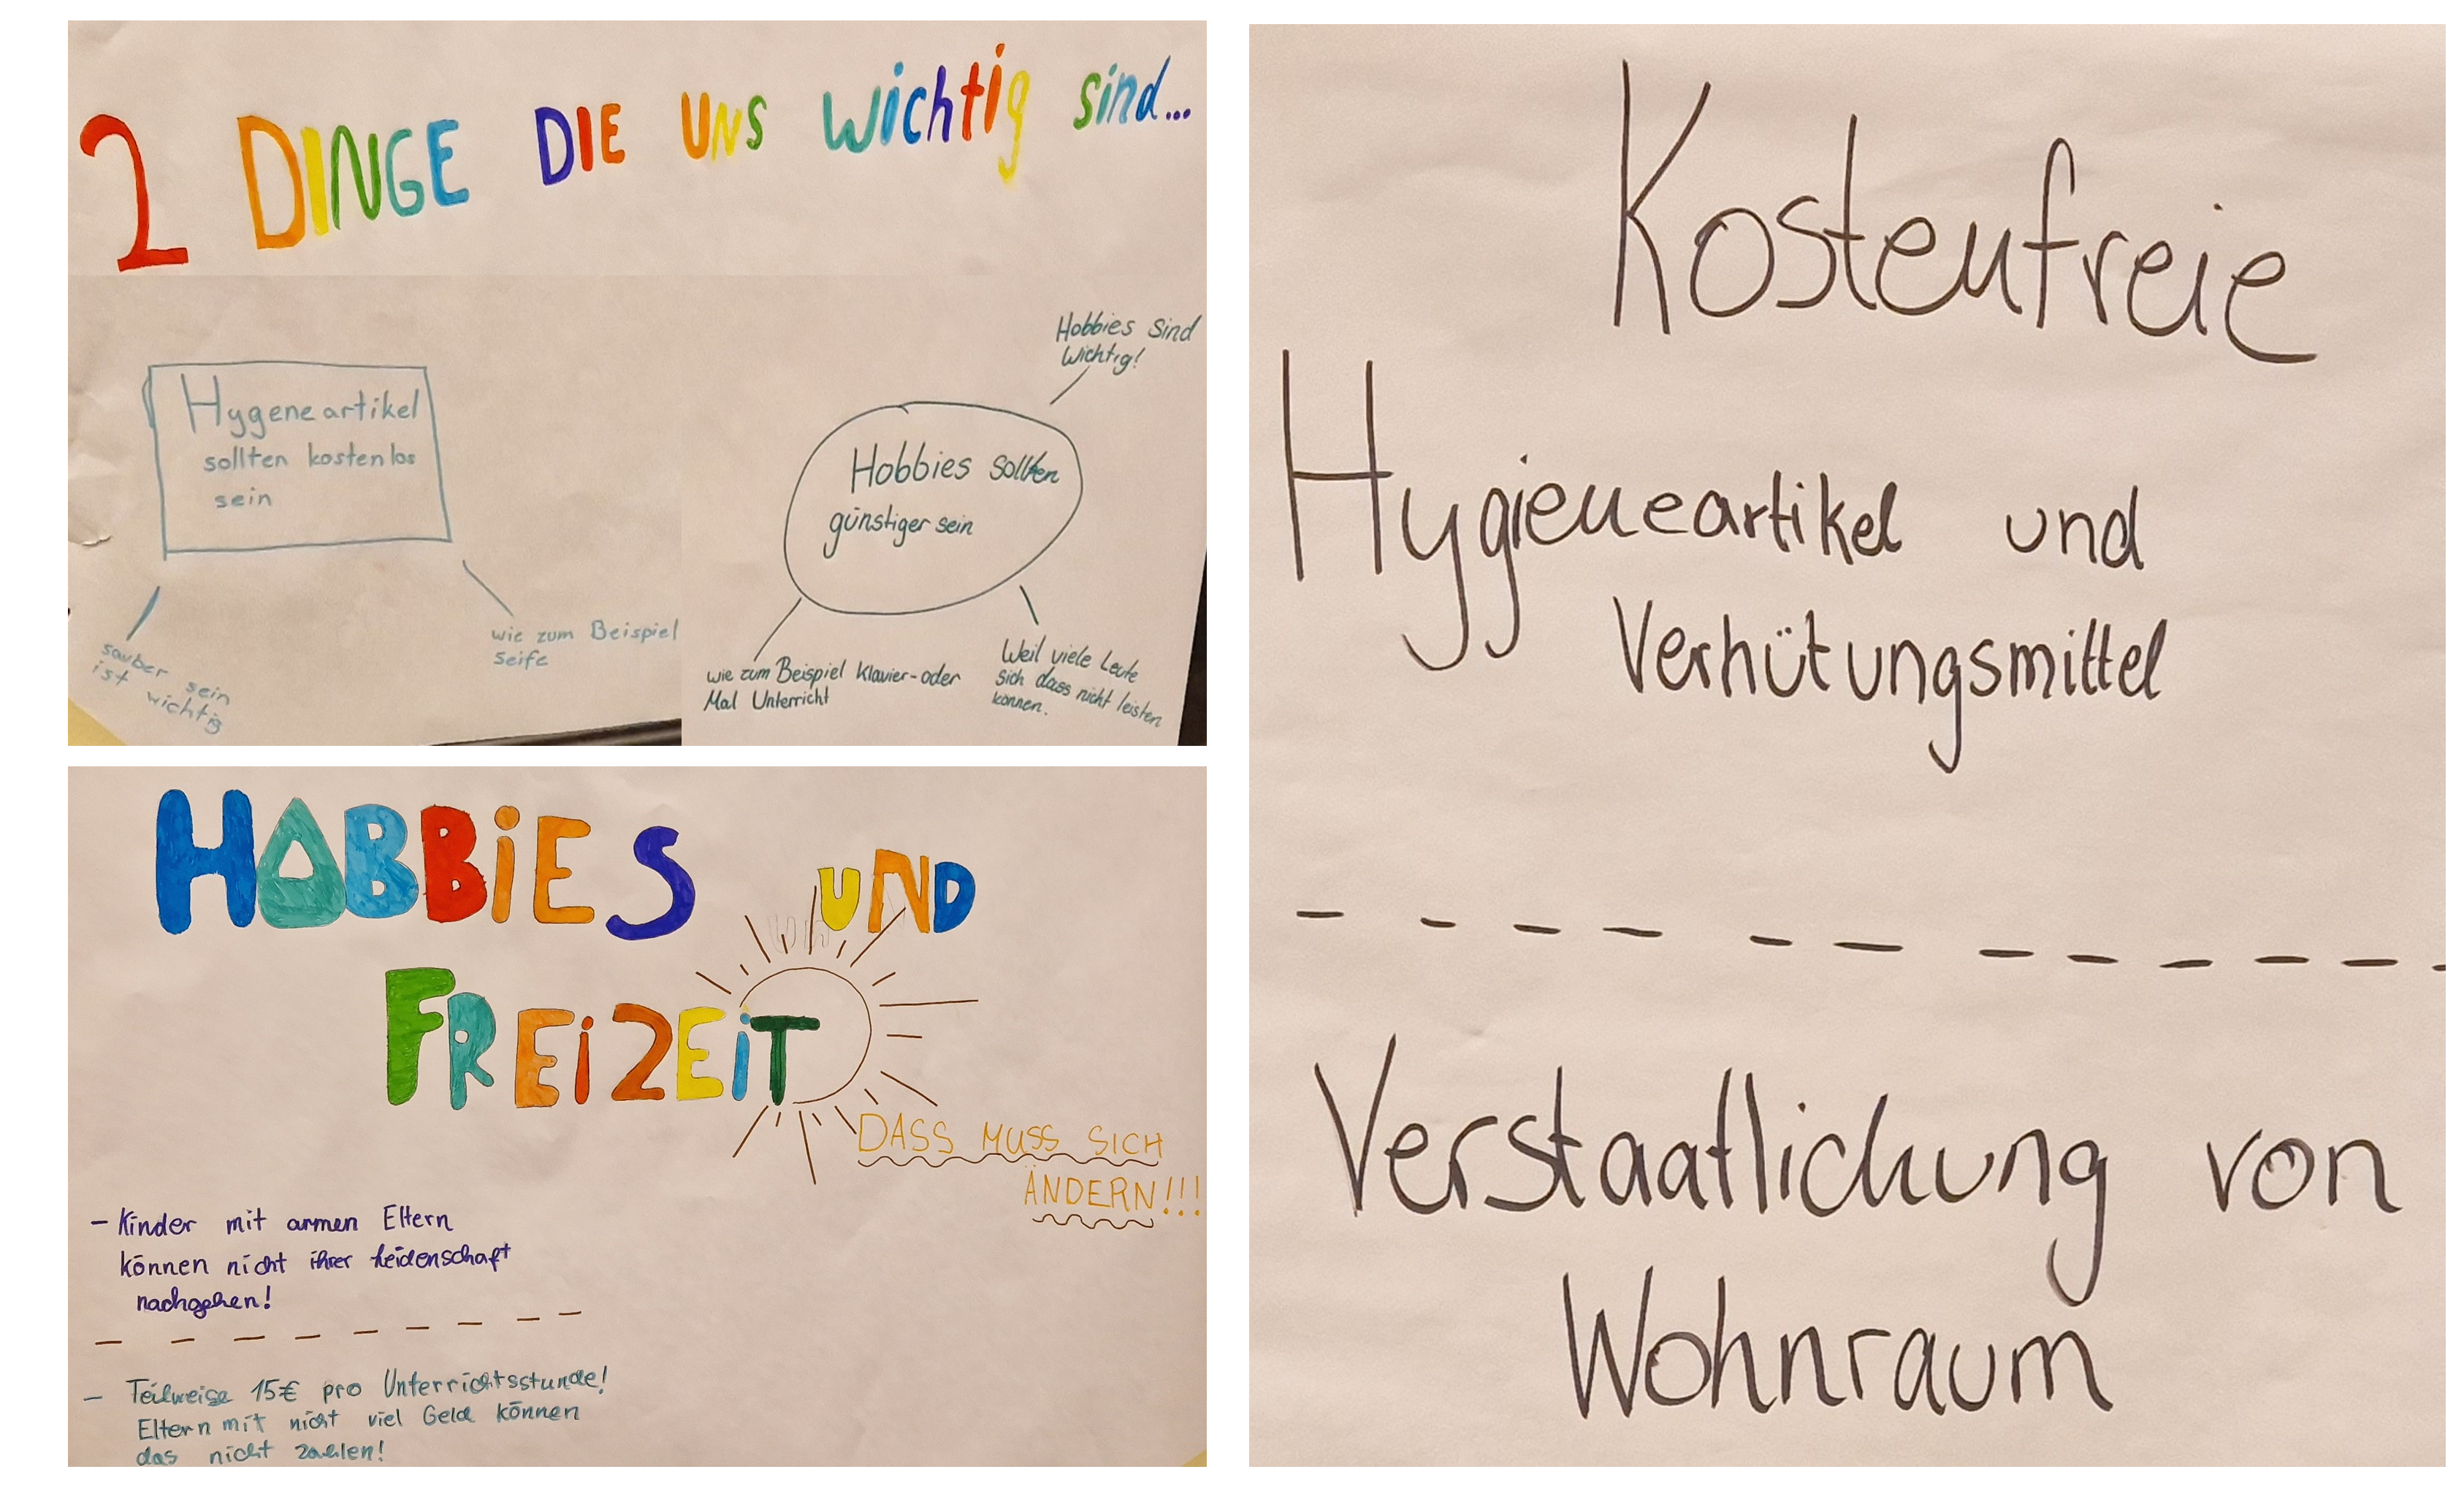 2 DINGE DIE UNS wichtig sind...
Hygeneartikel
sollten kostenlos
sein
sauber sein
ist wichtig
wie zum Beispiel
Seife
Hobbies sind
Wichtig!
Hobbies sollten
günstiger sein
wie zum Beispiel Klavier-oder
Mal Unterricht
Weil viele Leute
sich dass nicht leisten
können.
HOBBiES UND
FREiZEiT
DASS MUSS SICH
ÄNDERN!!!
- Kinder mit armen Eltern
können nicht ihrer Leidenschaft
nachgehen!
- Teilweise 15€ pro Unterrichtsstunde!
Eltern mit nicht viel Geld können
das nicht zahlen!
Kostenfreie
Hygieneartikel und
Verhütungsmittel
Verstaatlichung von
Wohnraum